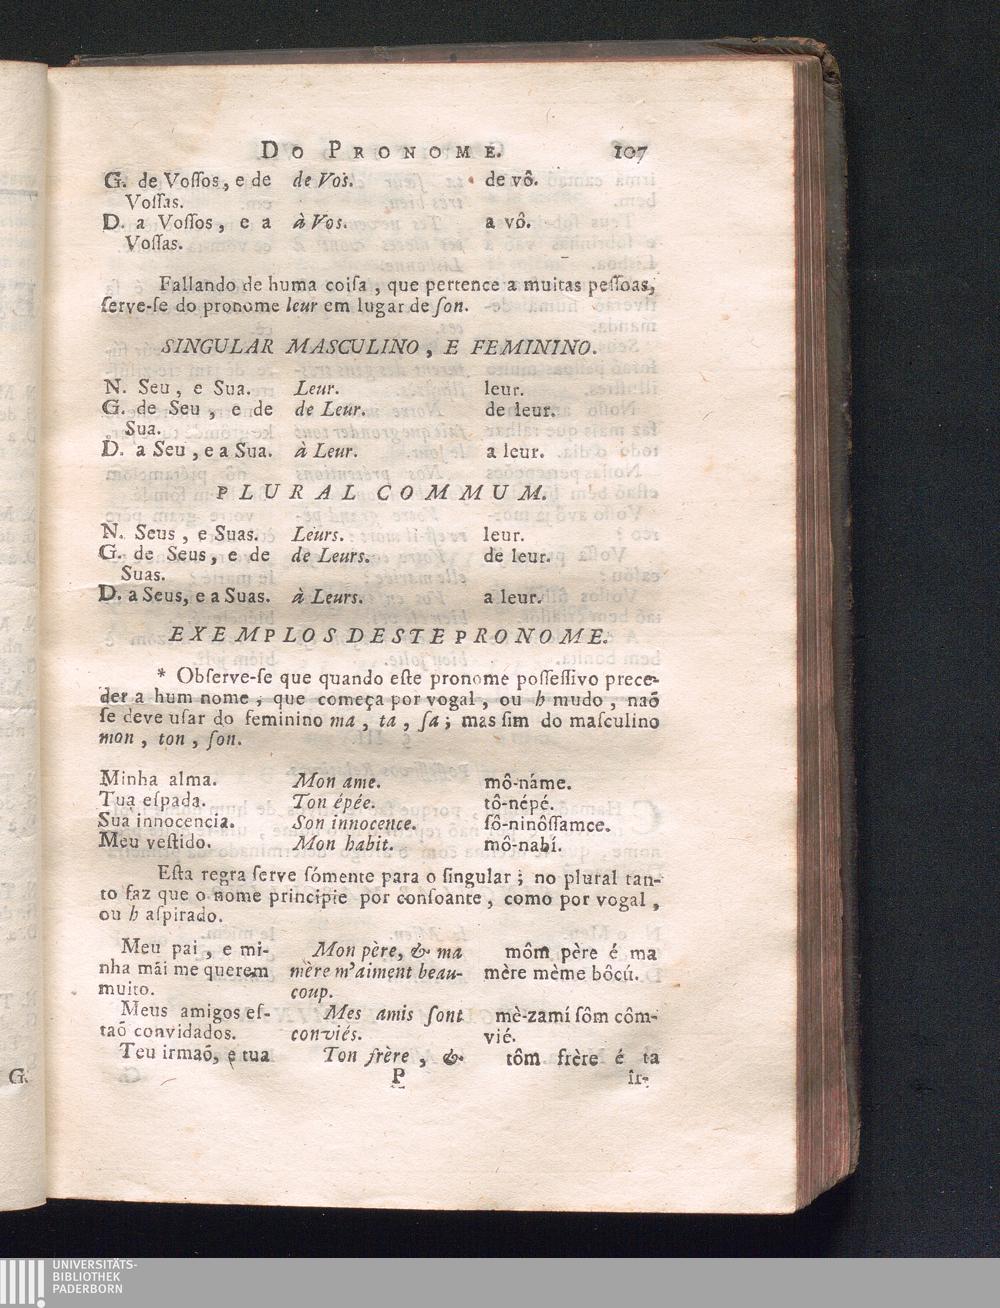 DO PRONOME. 107
G. de Voſſos, e de de Vos. de vô.
Voſſas.
D. a Voſſos, e a à Vos. a vô.
Voſſas.
Fallando de huma coiſa, que pertence a muitas peſſoas,
ſerve-ſe do pronome leur em lugar de ſon.
SINGULAR MASCULINO, E FEMININO.
N. Seu, e Sua. Leur. leur.
G. de Seu, e de de Leur. de leur.
Sua.
D. a Seu, e a Sua. à Leur. a leur.
PLURAL COMMUM.
N. Seus, e Suas. Leurs. leur.
G. de Seus, e de de Leurs. de leur.
Suas.
D. a Seus, e a Suas. à Leurs. a leur.
EXEMPLOS DESTE PRONOME.
* Obſerve-ſe que quando eſte pronome poſſeſſivo prece-
der a hum nome, que começa por vogal, ou h mudo, naõ
ſe deve uſar do feminino ma, ta, ſa; mas ſim do maſculino
mon, ton, ſon.
Minha alma. Mon ame. mô-náme.
Tua eſpada. Ton épée. tô-népé.
Sua innocencia. Son innocence. ſô-ninôſſamce.
Meu veſtido. Mon habit. mô-nabí.
Eſta regra ſerve ſómente para o ſingular; no plural tan-
to faz que o nome principie por conſoante, como por vogal,
ou h aſpirado.
Meu pai, e mi- Mon père, & ma môm père é ma
nha mãi me querem mère m'aiment beau- mère mème bôcú.
muito. coup.
Meus amigos eſ- Mes amis ſont mè-zamí ſôm côm-
taõ convidados. conviés. vié.
Teu irmaõ, e tua Ton frère, & tôm frère é ta
G. P
UNIVERSITÄTS-
BIBLIOTHEK
PADERBORN